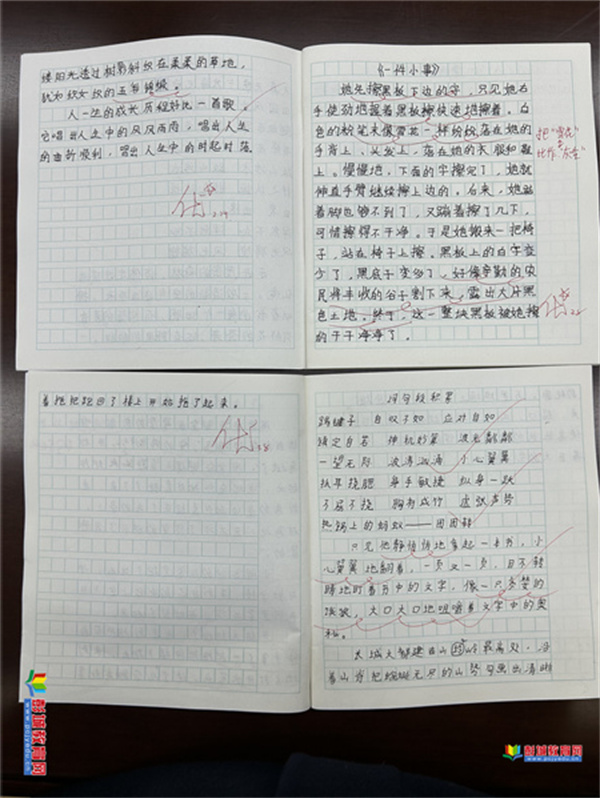 缕阳光透过树影斜纹在柔柔的草地，
犹如织女织的五彩锦缎。
人一生的成长历程好比一首歌。
它唱出人生中的风风雨雨，唱出人生
的曲折顺利，唱出人生中的时起时落
优
2.19
《一件小事》
她先擦黑板下边的字，只见她右
手使劲地握着黑板擦快速地擦着。白
色的粉笔末像雪花一样纷纷落在她的
手背上、头发上，落在她的衣服和鞋
上。慢慢地，下面的字擦完了，她就
伸直手臂继续擦上边的。后来，她踮
着脚也够不到了，又蹦着擦了几下，
可惜擦得不干净。于是她搬来一把椅
子，站在椅子上擦。黑板上的白字变
少了，黑底子变多了，好像辛勤的农
民将丰收的谷子割下来，露出大片黑
色土地。终于，这一整块黑板被她擦
的干干净净了。
把"雪花"
比作
优
着拖把跑回了楼上开始拖了起来。
优
词句段积累
踢毽子 自叹不如 应对自如
镇定自若 神机妙算 波光粼粼
一望无际 波涛汹涌 小心翼翼
抓耳挠腮 身手敏捷 纵身一跃
不屈不挠 胸有成竹 虚张声势
热锅上的蚂蚁——团团转
只见他静悄悄地拿起一本书，小
心翼翼地翻着，一页又一页，目不转
睛地盯着书中的文字，像一只贪婪的
饿狼，大口大口地咀嚼着文字中的奥
秘。
长城大都建在山岭最高处，沿
着山脊把蜿蜒无尽的山势勾画出清晰
彭城教育网
www.pcjyedu.cn
彭城教育网
www.pcjyedu.cn